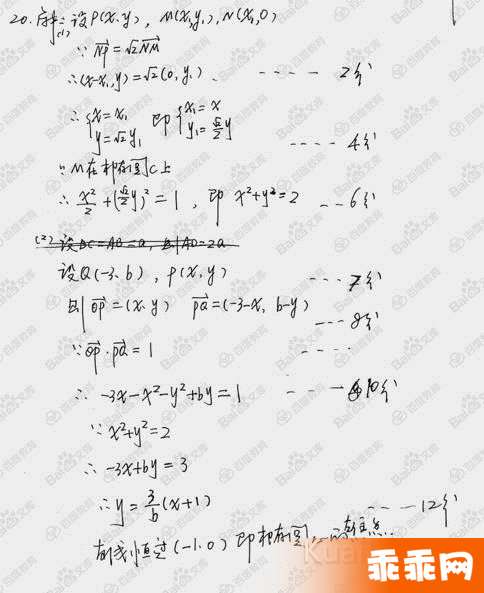 20. 解: (1) 设P(x,y), M(x₁,y₁), N(x₁,0)
∵ NP = √2 NM
∴ (x-x₁,y) = √2(0,y₁) ---- 2分
∴ {x=x₁ y=√2y₁ 即 {x₁=x y₁=√2/2 y ---- 4分
∵ M在椭圆C上
∴ x²/2 + (√2/2 y)² = 1, 即 x²+y²=2 --- 6分
(2) 设BC=AB=a, 则AD=2a
设Q(-3,b), P(x,y) --- 7分
则 OP=(x,y) PQ=(-3-x, b-y) --- 8分
∵ OP·PQ=1 ----
∴ -3x-x²-y²+by=1 ---- 10分
∵ x²+y²=2
∴ -3x+by=3
∴ y=3/b(x+1) ---- 12分
恒过(-1,0) 即椭圆
乖乖网